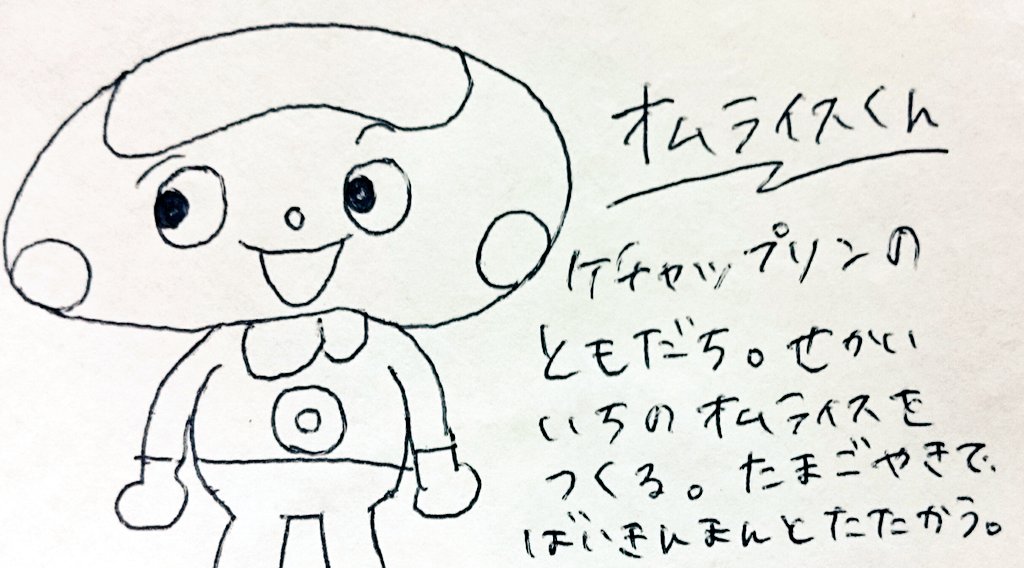 オムライスくん
ケチャップリンの
ともだち。せかい
いちのオムライスを
つくる。たまごやきで
ばいきんまんとたたかう。